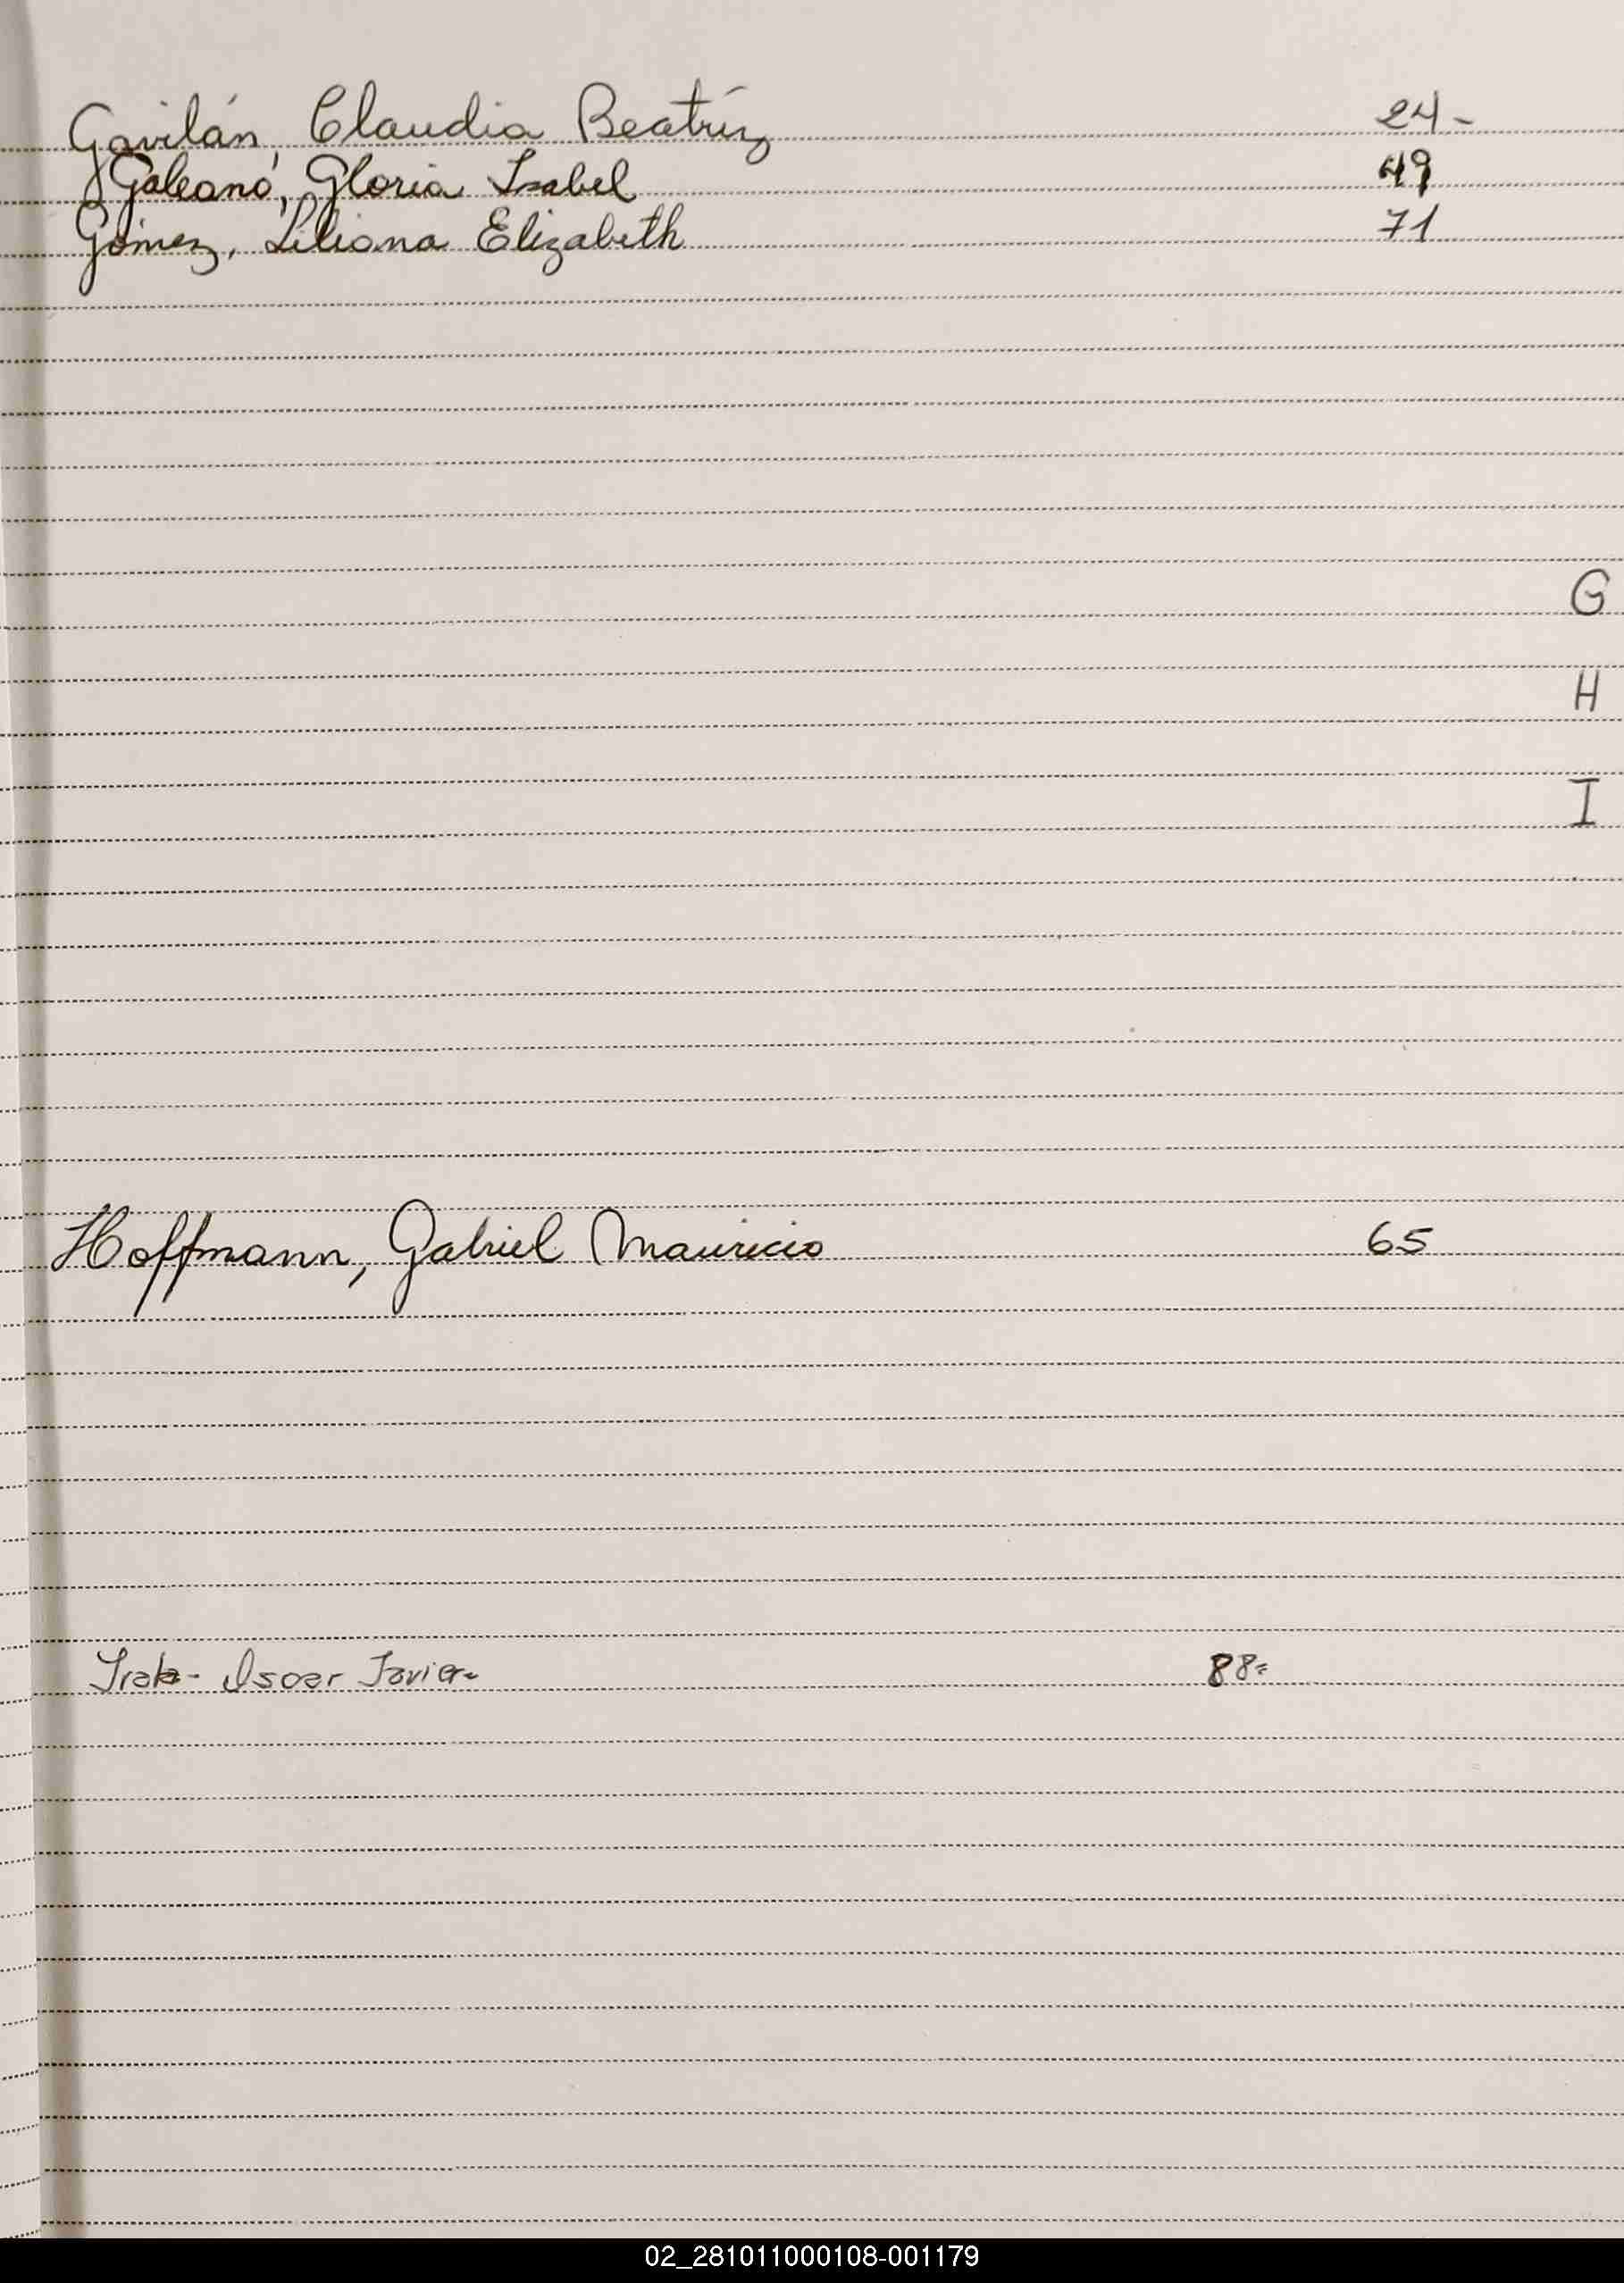 Gavilán, Claudia Beatríz 24-
Galeano, Gloria Isabel 49
Gómez, Liliana Elizabeth 71
G
H
I
Hoffmann, Gabriel Mauricio 65
Irala- Oscar Javier- 88=
02_281011000108-001179